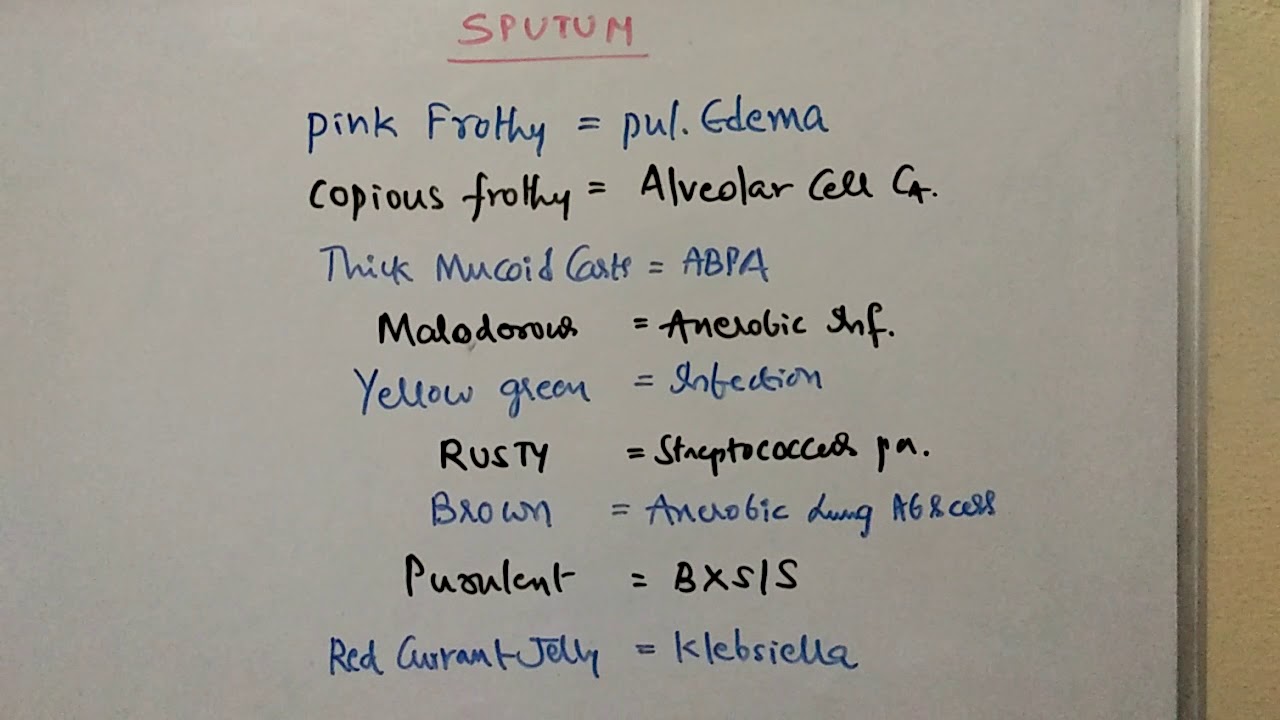 SPUTUM
Pink Frothy = pul. Edema
Copious frothy = Alveolar Cell CA.
Thick Mucoid Casts = ABPA
Malodorous = Anerobic Inf.
Yellow green = Infection
RUSTY = Streptococcus pn.
Brown = Anerobic Lung Abscess
Purulent = BXSIS
Red Currant Jelly = Klebsiella